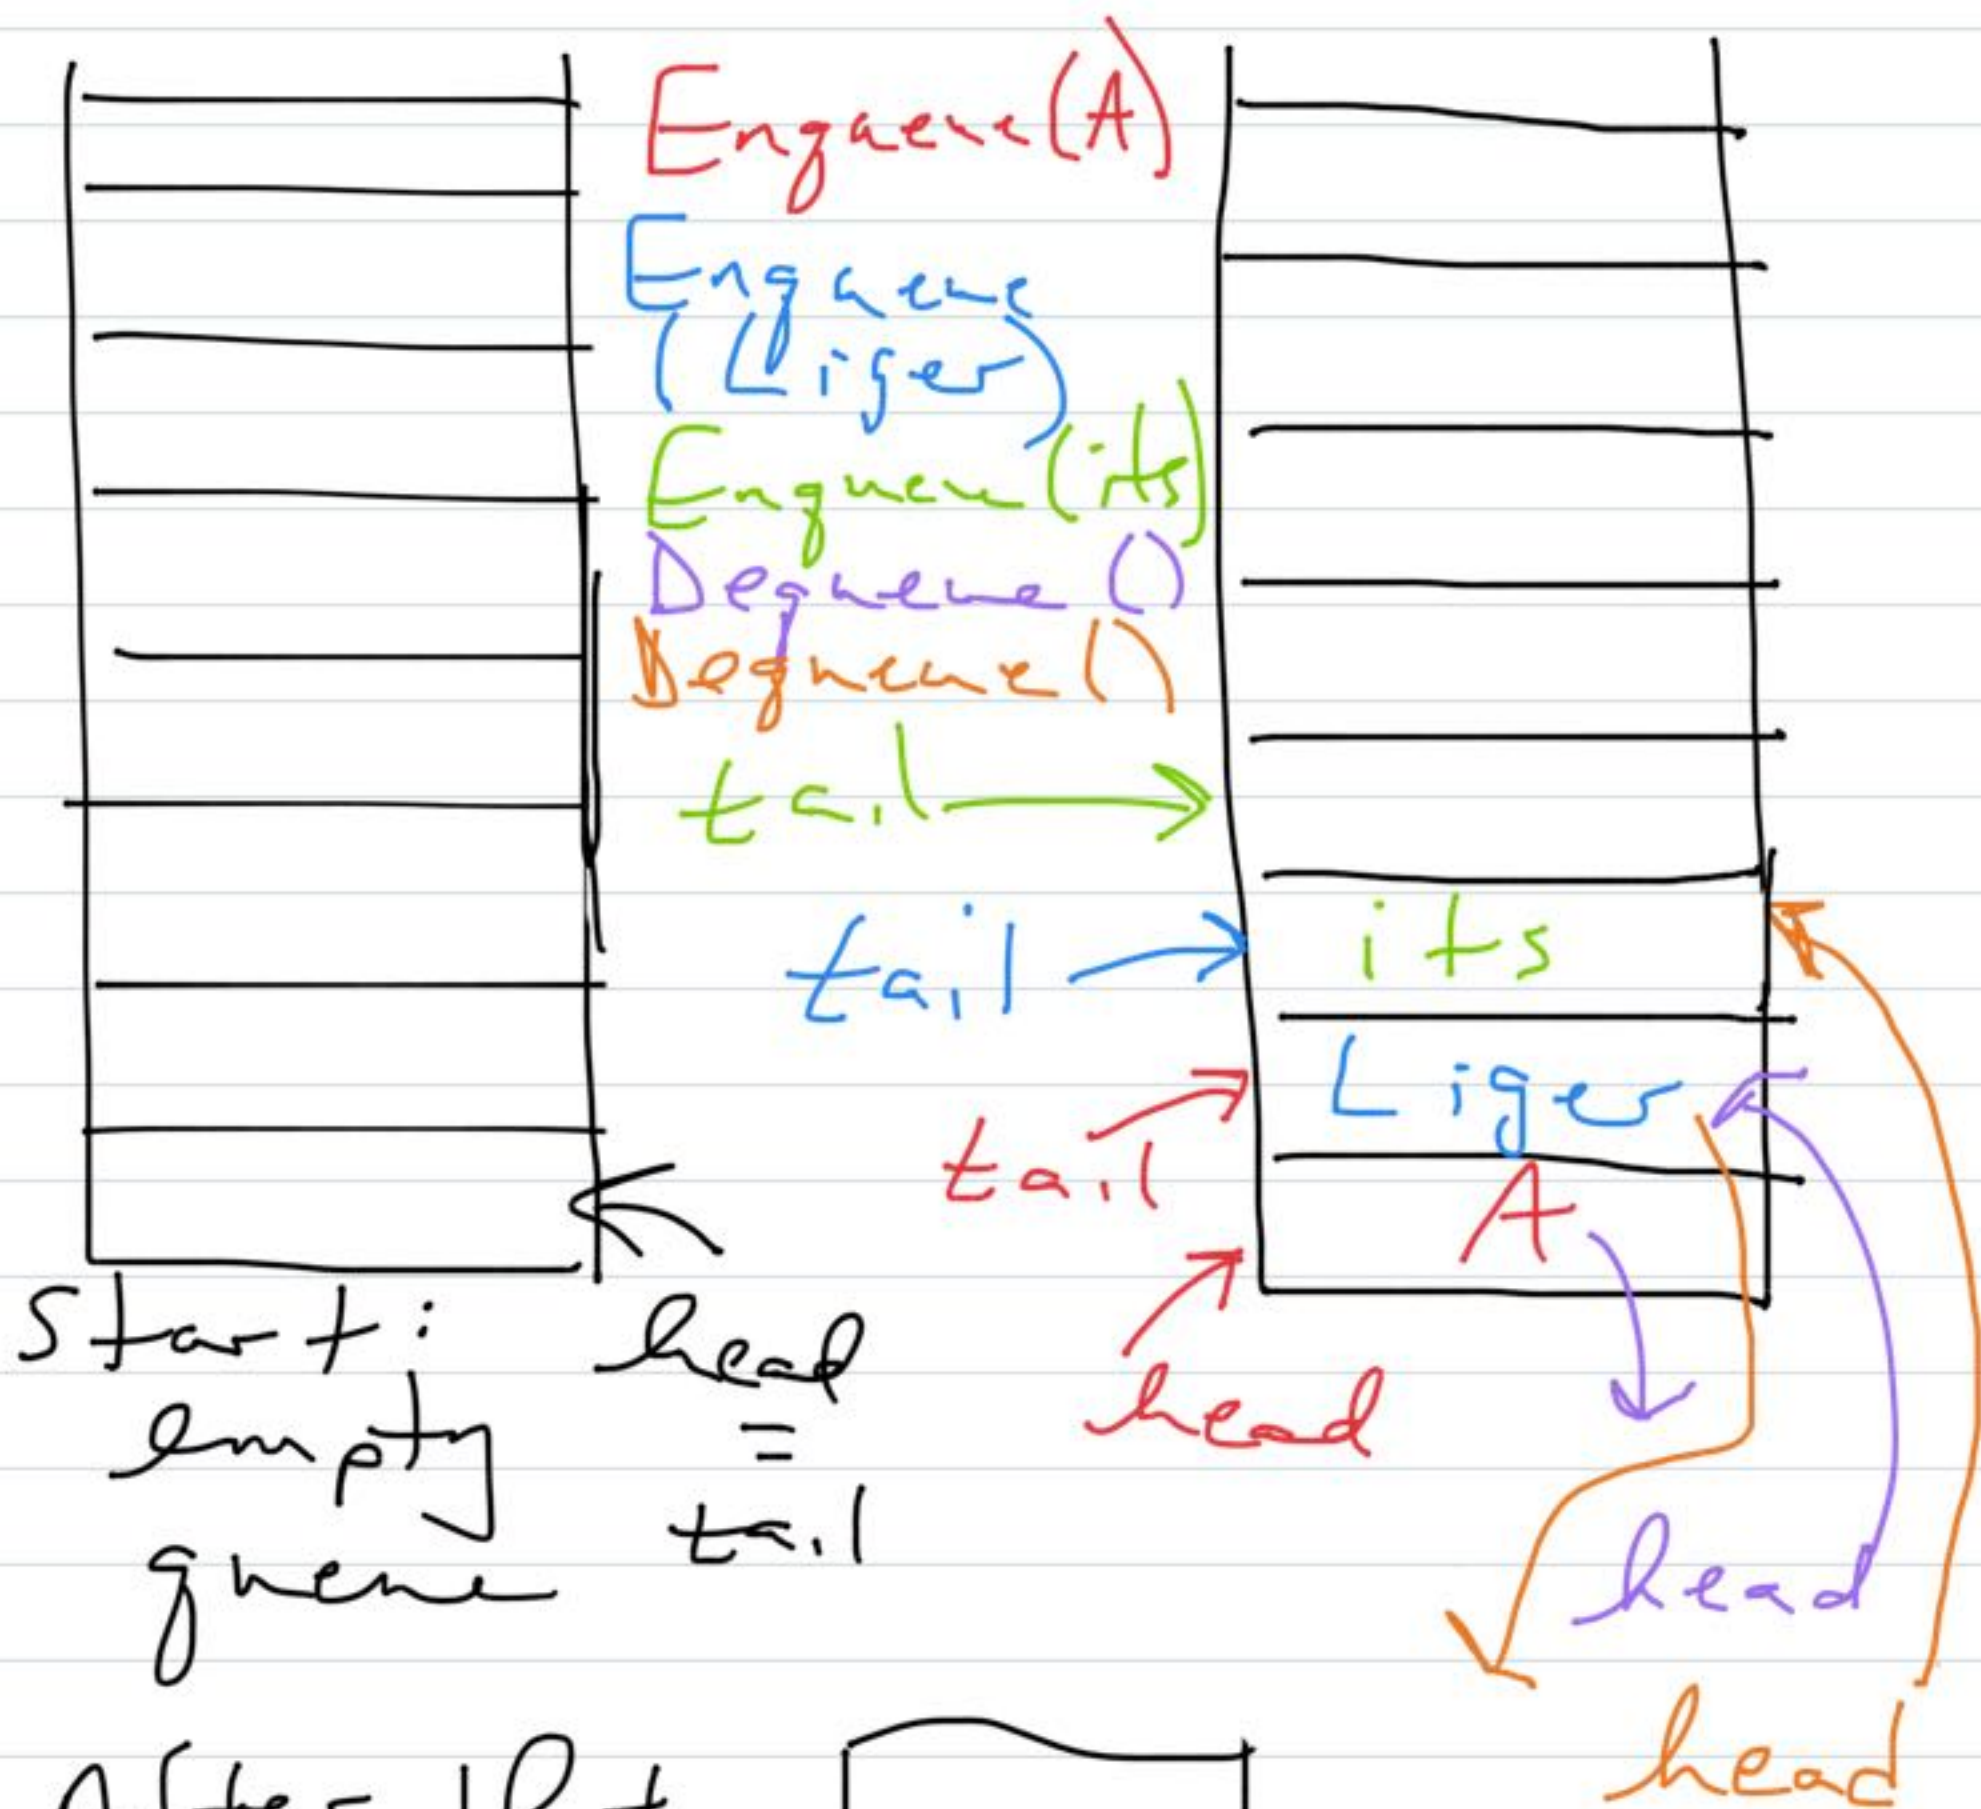 Enqueue(A)
Enqueue
(Liger)
Enqueue(its)
Dequeue()
Dequeue()
tail
its
tail
Liger
tail
A
head
Start:
empty
queue
head
=
tail
head
head